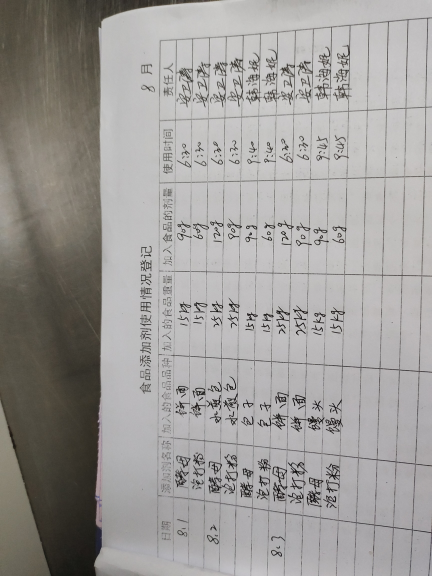 食品添加剂使用情况登记
8 月
日期 添加剂名称 加入的食品品种 加入的食品重量 加入食品的剂量 使用时间 责任人
8.1 酵母 饼面 15kg 90g 6:30 安卫涛
泡打粉 饼面 15kg 60g 6:30 安卫涛
8.2 酵母 水煎包 25kg 120g 6:30 安卫涛
泡打粉 水煎包 25kg 90g 6:30 安卫涛
酵母 包子 15kg 90g 9:40 韩海妮
泡打粉 包子 15kg 60g 9:40 韩海妮
8.3 酵母 饼面 25kg 120g 6:30 安卫涛
泡打粉 饼面 25kg 90g 6:30 安卫涛
酵母 馒头 15kg 90g 9:45 韩海妮
泡打粉 馒头 15kg 60g 9:45 韩海妮